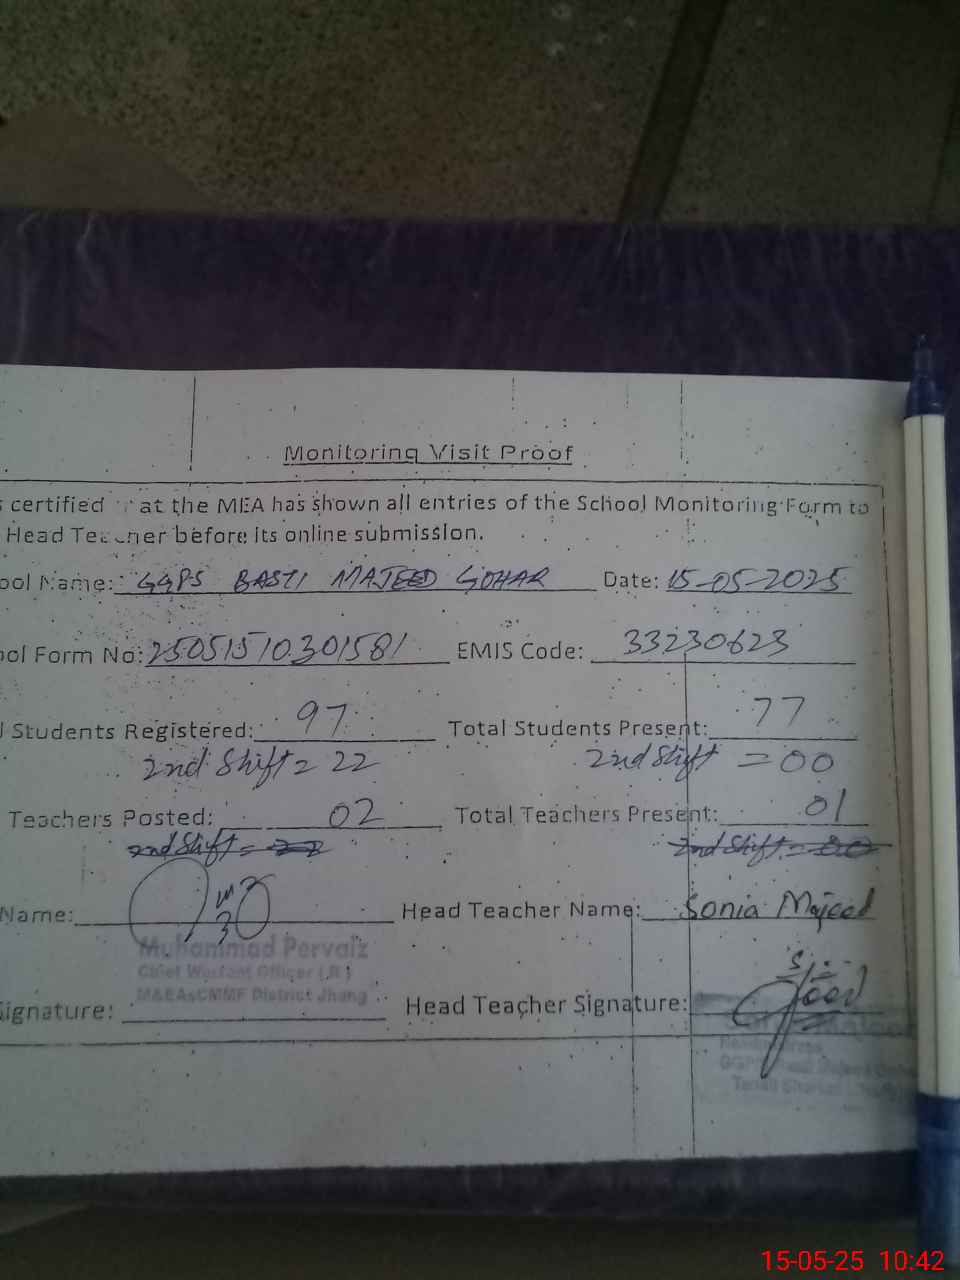 Monitoring Visit Proof
certified at the MEA has shown all entries of the School Monitoring Form to
Head Teacher before its online submission.
ool Name: GGPS BASTI MAJEED GOHAR Date: 15-05-2025
ol Form No: 25051510301581 EMIS Code: 33230623
Students Registered: 97 Total Students Present: 77
2nd Shift = 22 2nd Shift = 00
Teachers Posted: 02 Total Teachers Present: 01
2nd Shift = 2nd Shift = 00
Name: Head Teacher Name: Sonia Majeed
Muhammad Pervaiz
Chief Warrant Officer (R)
M&EAsCMMF District Jhang
ignature: Head Teacher Signature:
15-05-25 10:42